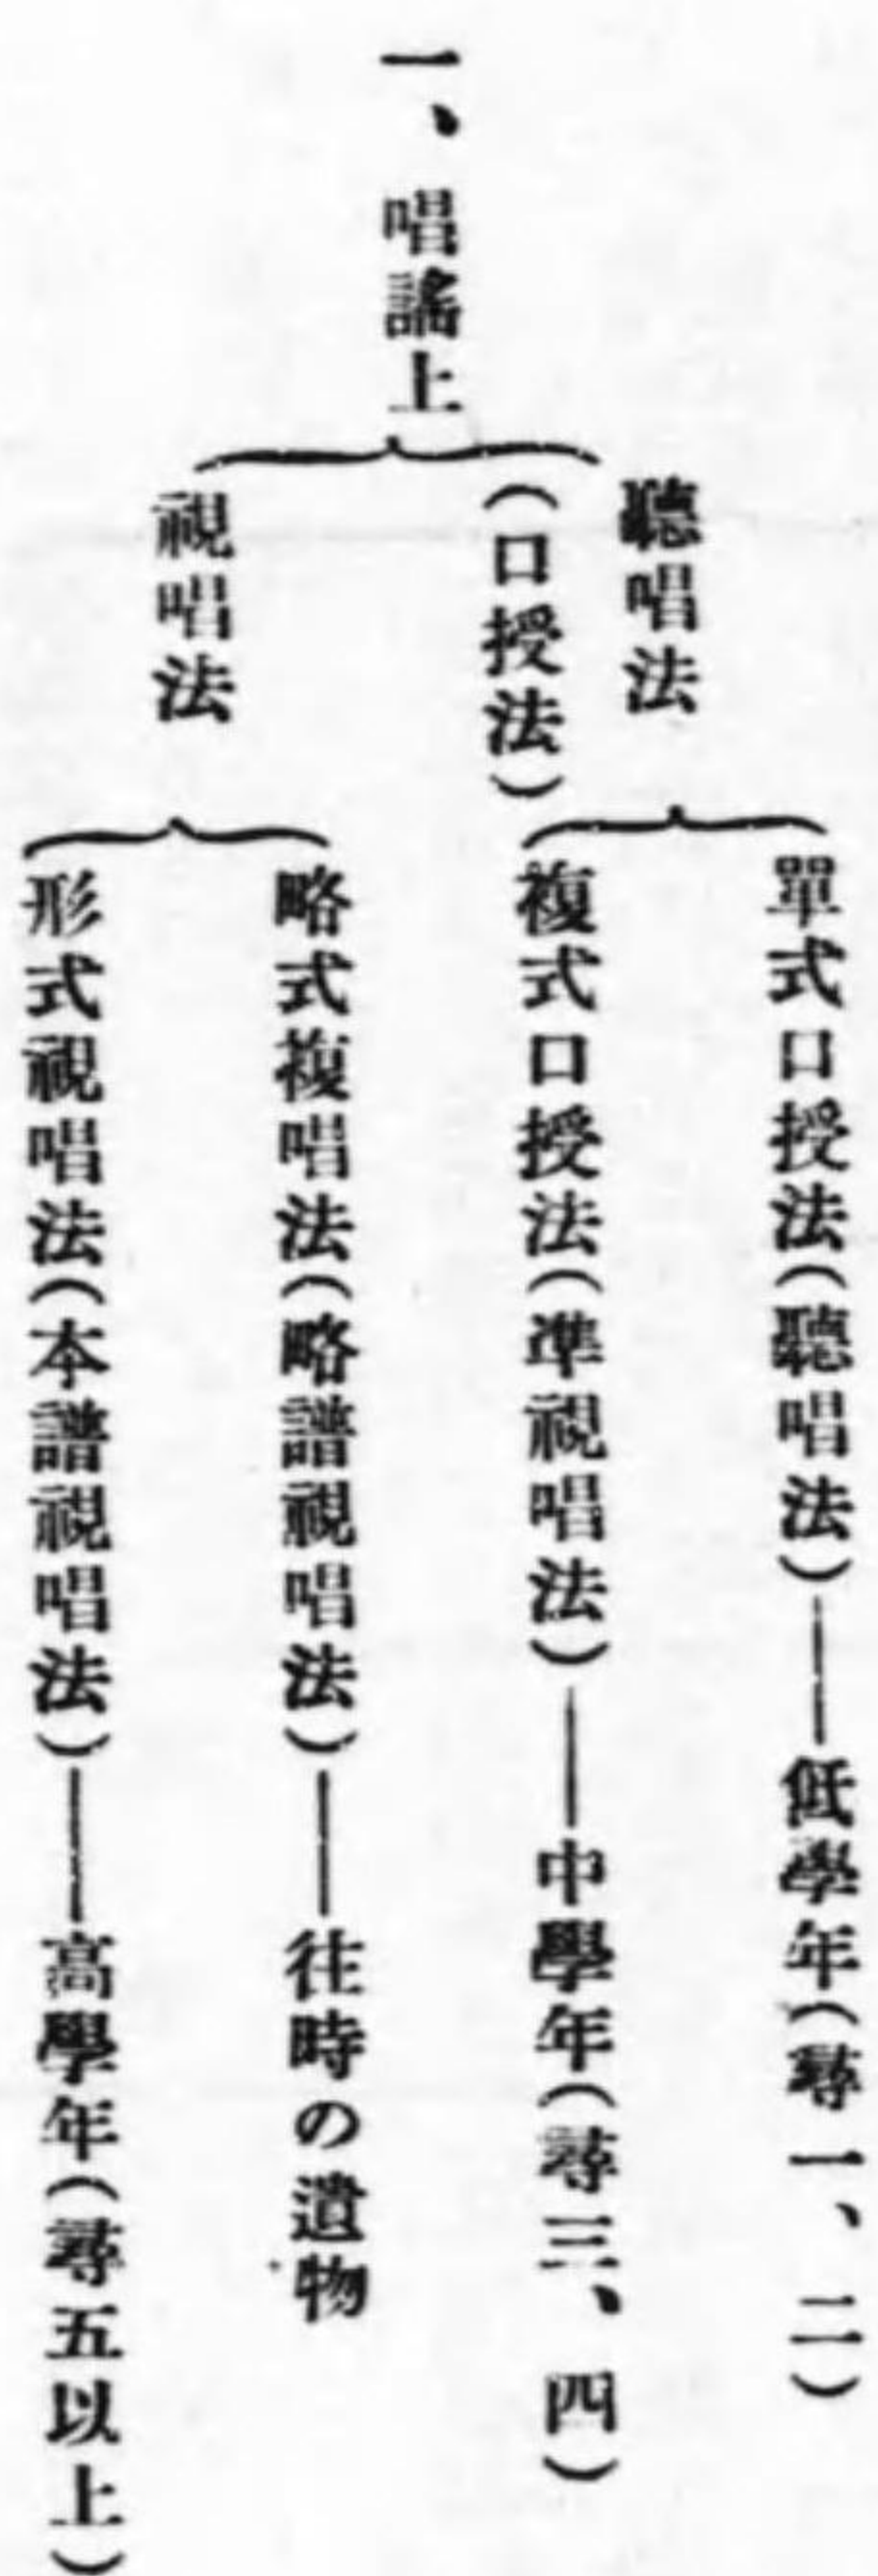 一、唱謠上
聽唱法
(口授法)
單式口授法(聽唱法)——低學年(尋一、二)
複式口授法(準視唱法)——中學年(尋三、四)
視唱法
略式複唱法(略譜視唱法)——往時の遺物
形式視唱法(本譜視唱法)——高學年(尋五以上)